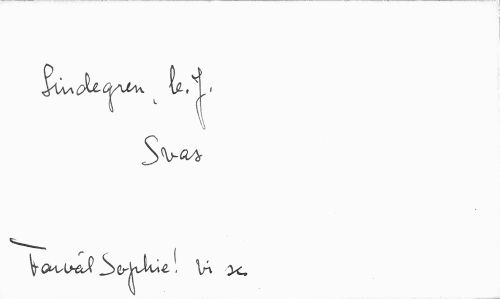 Lindegren, C.J.
Svas
Farväl Sophie! Vi se